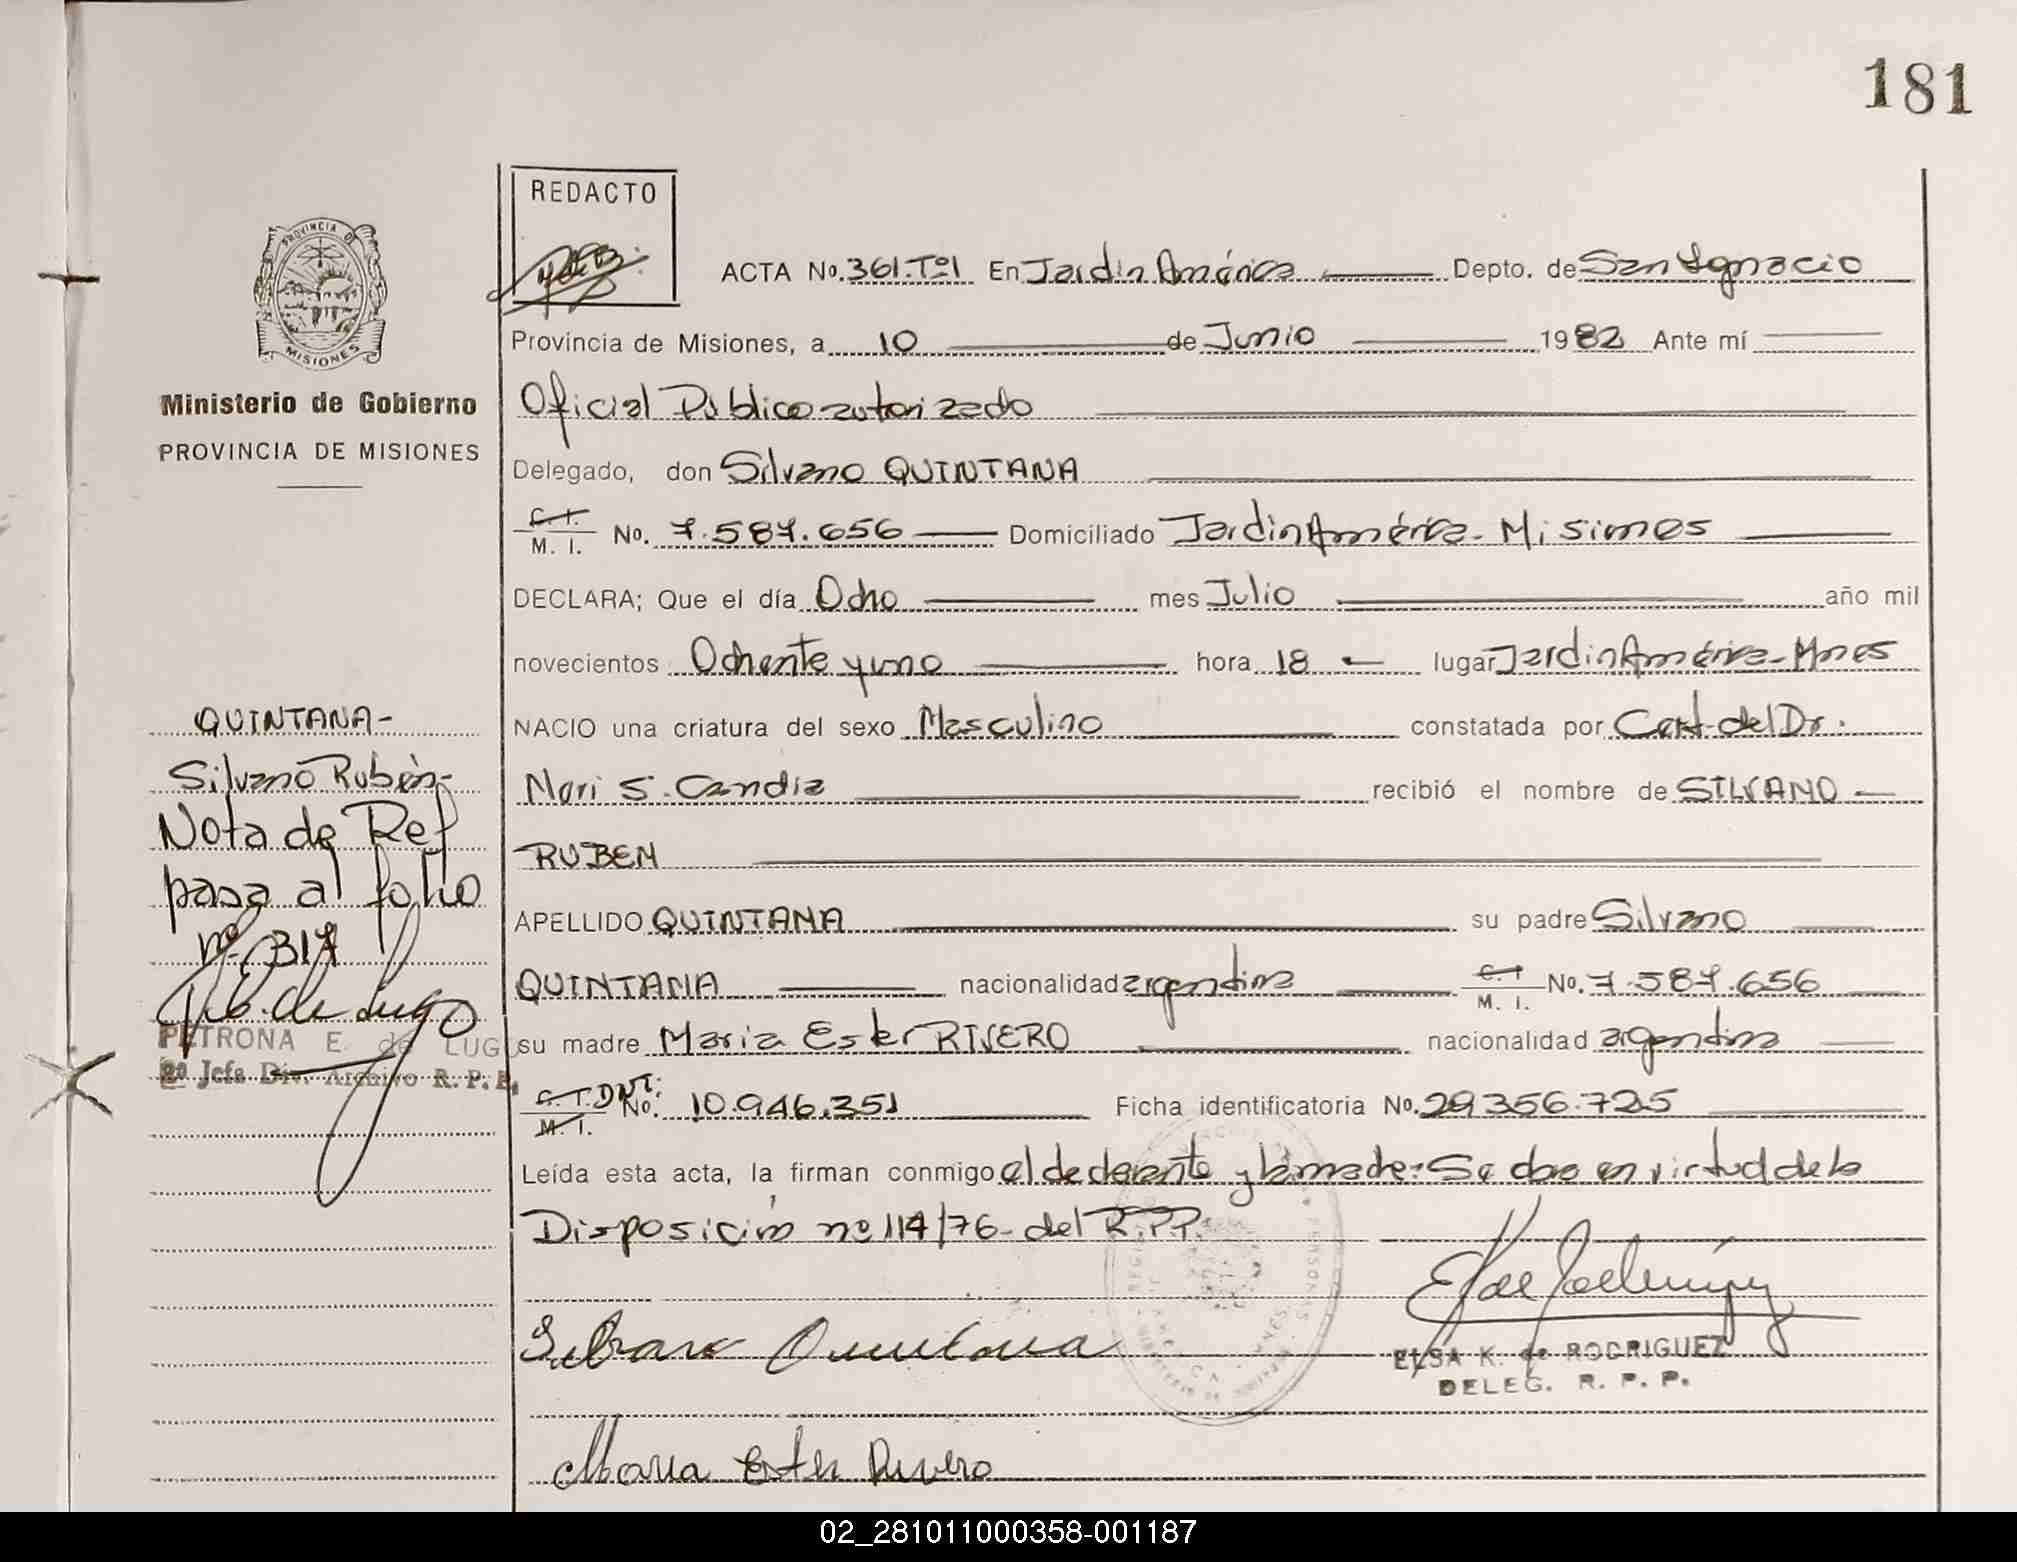 181
REDACTO
ACTA No. 361.Tº1 En Jardín América Depto. de San Ignacio
Provincia de Misiones, a 10 de Junio 1982 Ante mí
Oficial Público autorizado
Delegado, don Silvano QUINTANA
C.I. M. I. No. 7.587.656 Domiciliado Jardín América - Misiones
DECLARA; Que el día Ocho mes Julio año mil
novecientos Ochenta y uno hora 18 lugar Jardín América - Mnes
NACIO una criatura del sexo Masculino constatada por Cert. del Dr.
Mori S. Candia recibió el nombre de SILVANO
RUBEN
APELLIDO QUINTANA su padre Silvano
QUINTANA nacionalidad argentina C.I. M. I. No. 7.587.656
su madre Maria Ester RIVERO nacionalidad argentina
C.I. DNI: M. I. No. 10.946.351 Ficha identificatoria No. 29356.725
Leída esta acta, la firman conmigo el declarante y la madre: Se labra en virtud de la
Disposición nº 114/76 - del R.P.P.
Silvano Quintana
ELSA K. de RODRIGUEZ
DELEG. R. P. P.
Maria Ester Rivero
PROVINCIA DE
MISIONES
Ministerio de Gobierno
PROVINCIA DE MISIONES
QUINTANA-
Silvano Rubén-
Nota de Ref
pasa al folio
nº 317
P. E. de Lugo
PETRONA E. de LUGO
2ª Jefa Div. Archivo R. P. P.
02_281011000358-001187